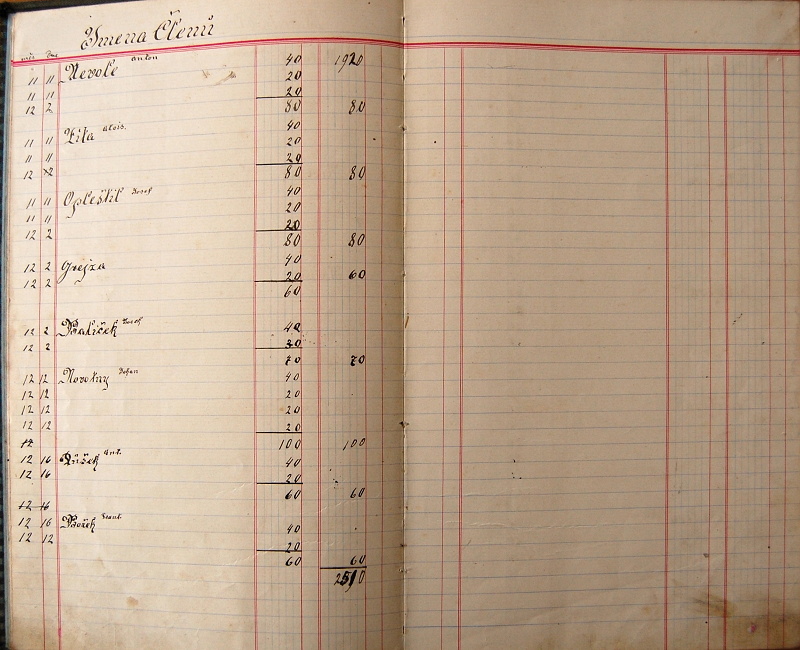 Jmena Členů
11 11 Nevole Anton 40 1920
11 11 20
12 2 20
80 80
11 11 Zíta Alois. 40
11 11 20
12 2 20
80 80
11 11 Opleštil Josef 40
11 11 20
12 2 20
80 80
12 2 Grejza 40
12 2 20 60
60
12 2 Balíček Josef 40
12 2 30
70 70
12 12 Novotny Johan 40
12 12 20
12 12 20
12 12 20
12 100 100
12 16 Ant. 40
12 16 20
60 60
12 16
12 16 40
12 12 20
60 60
2510